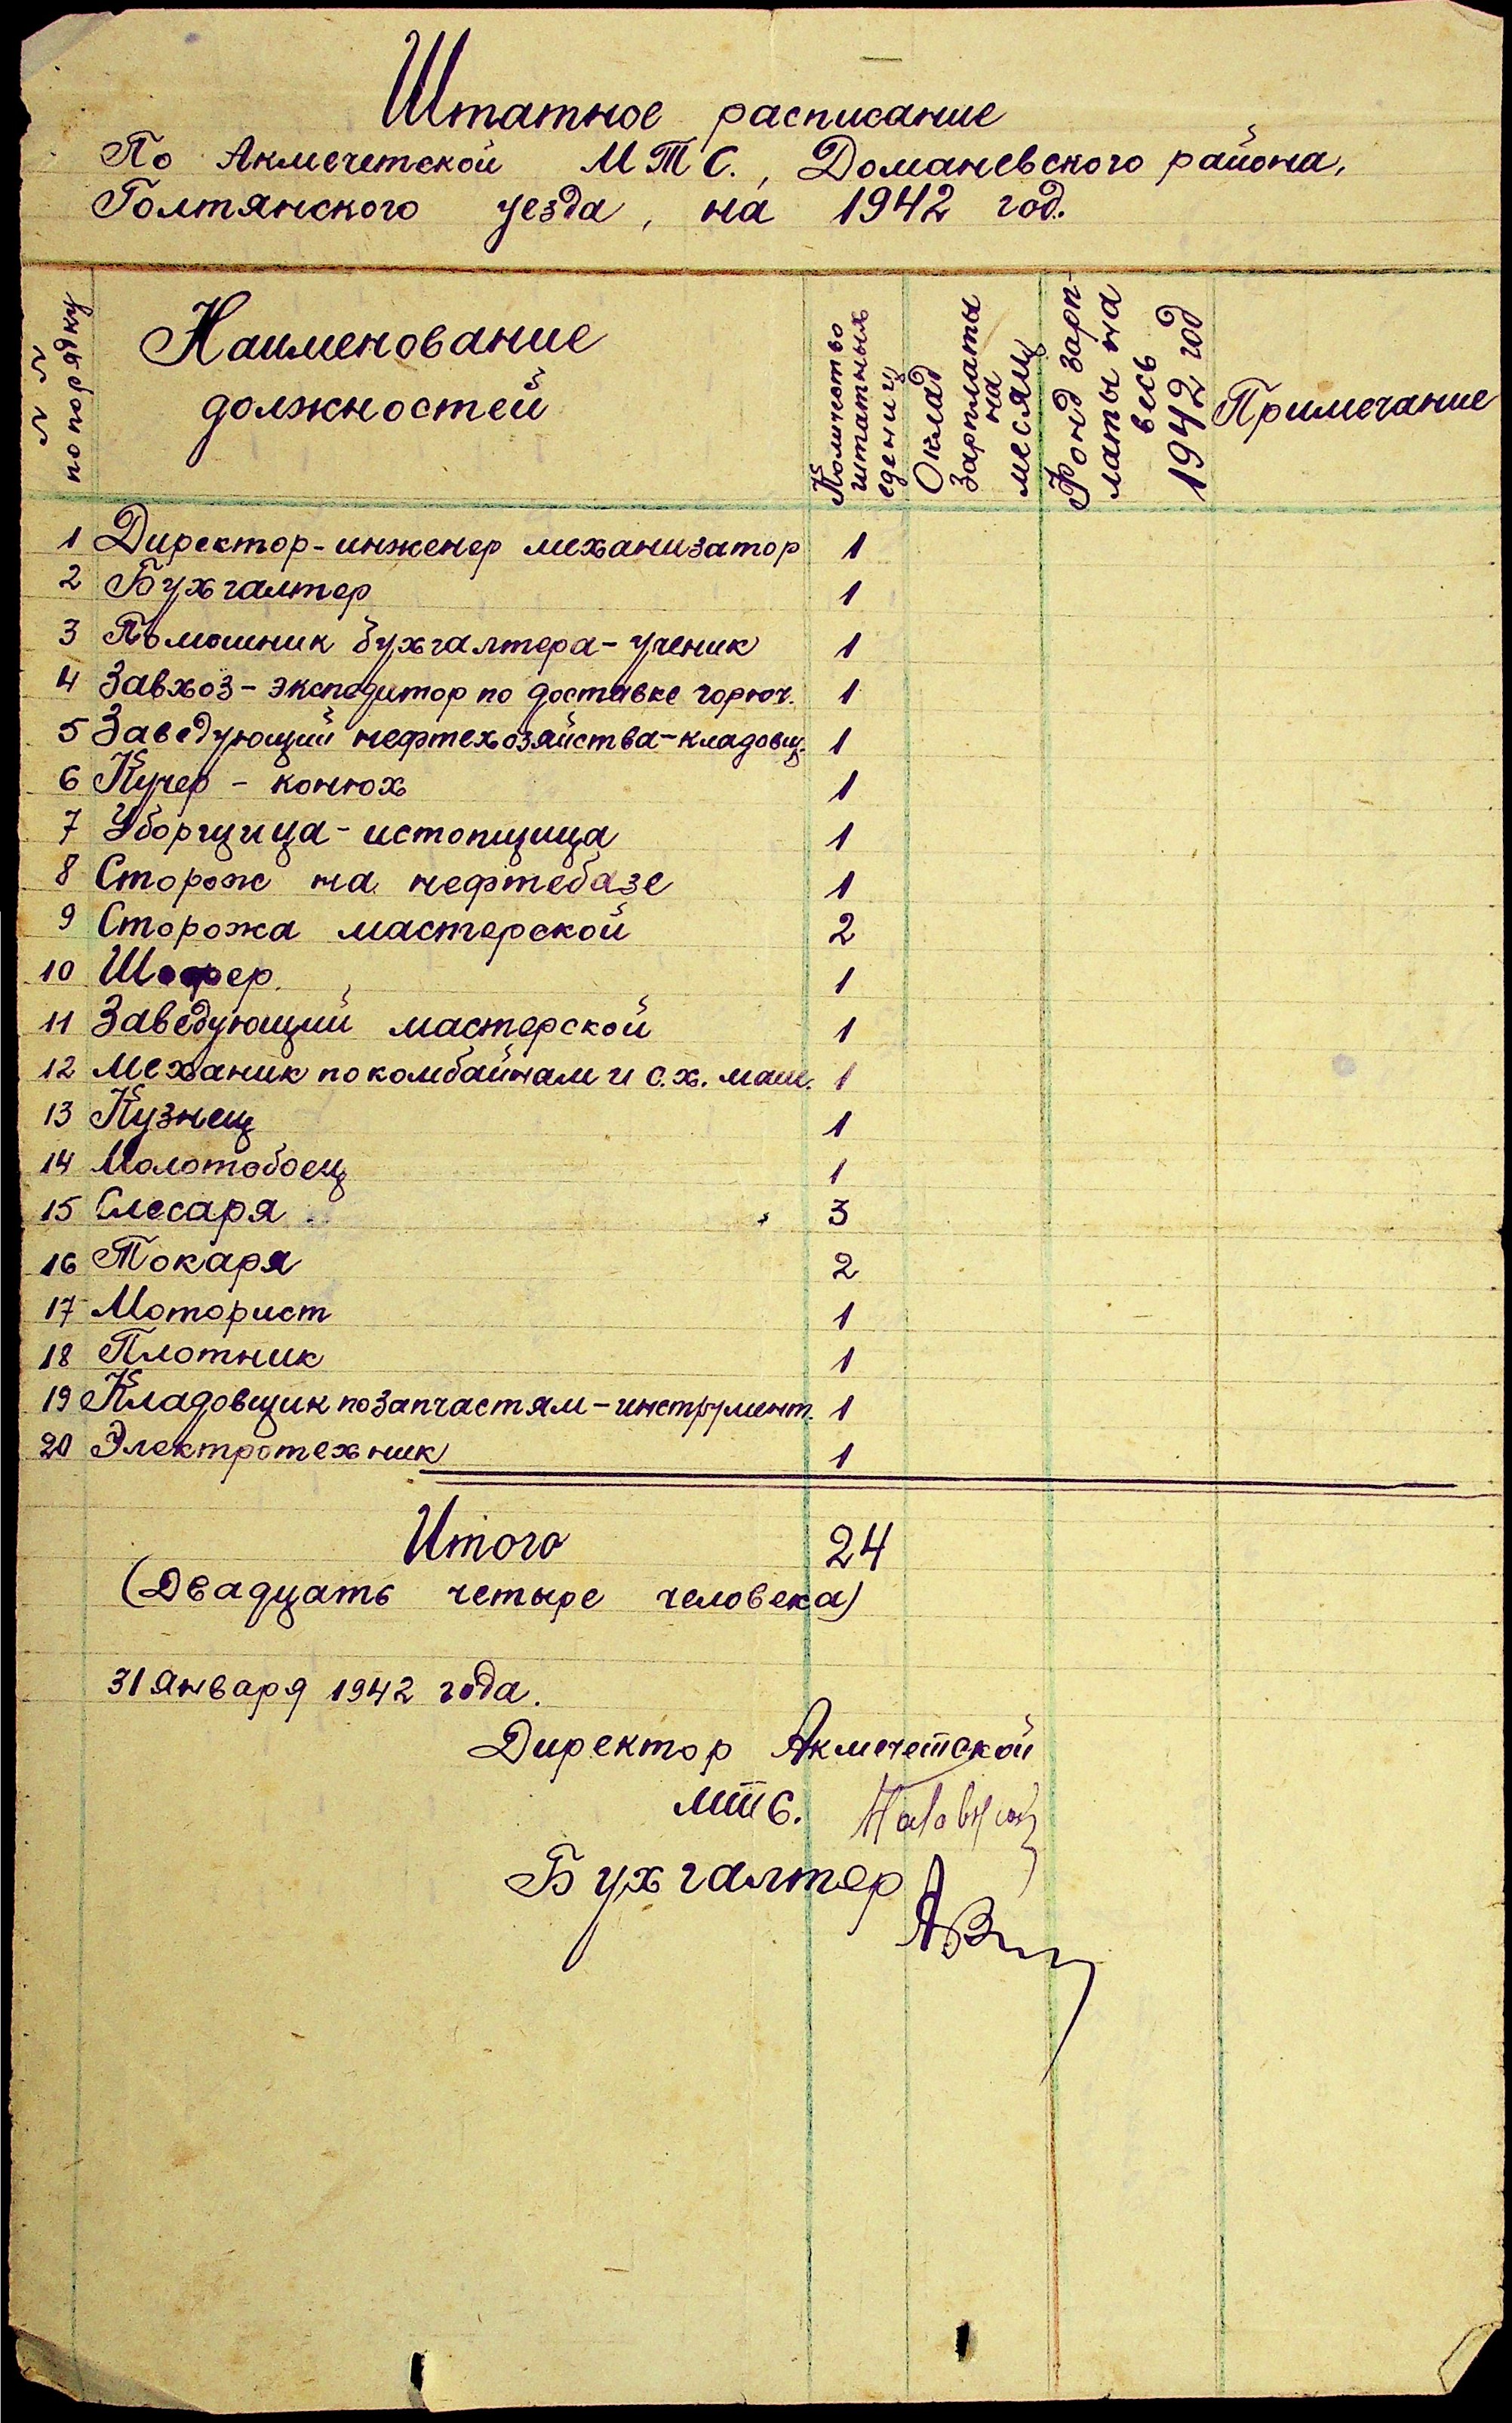 Штатное расписание
По Акмечетской МТС., Доманевского района,
Голтянского уезда, на 1942 год.
по порядку
Наименование
должностей
Количество
штатных
едениц
Оклад
зарплаты
на
месяц
Фонд зарп-
латы на
весь
1942 год
Примечание
1 Директор-инженер механизатор 1
2 Бухгалтер 1
3 Помошник бухгалтера-ученик 1
4 Завхоз-экспедитор по доставке горюч. 1
5 Заведующий нефтехозяйства-кладовщ. 1
6 Кучер - конюх 1
7 Уборщица-истопщица 1
8 Сторож на нефтебазе 1
9 Сторожа мастерской 2
10 Шофер. 1
11 Заведующий мастерской 1
12 Механик по комбайнам и с.х. маш. 1
13 Кузнец 1
14 Молотобоец 1
15 Слесаря 3
16 Токаря 2
17 Моторист 1
18 Плотник 1
19 Кладовщик по запчастям-инструмент. 1
20 Электротехник 1
Итого 24
(Двадцать четыре человека)
31 января 1942 года.
Директор Акмечетской
МТС.
Бухгалтер